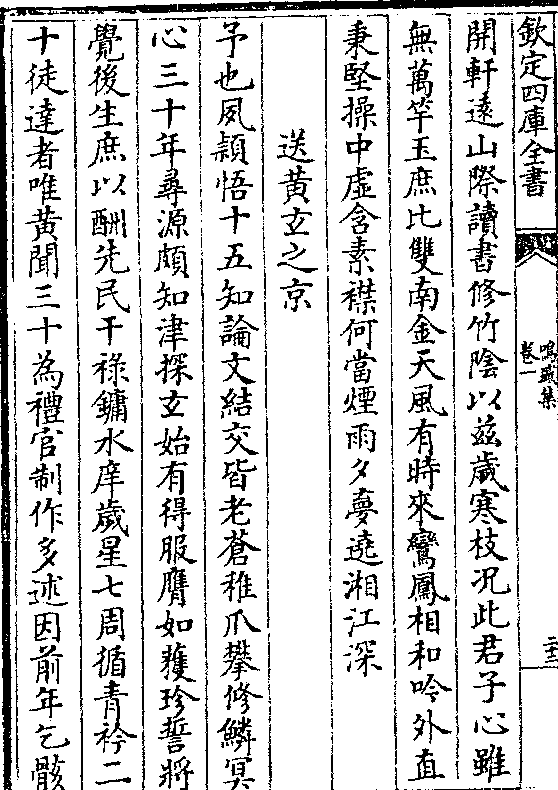 欽定四庫全書
鳴盛集
卷一
二十三
開軒遠山際讀書修竹陰以茲歲寒枝况此君子心雖
無萬竿玉庶比雙南金天風有時來鸞鳳相和吟外直
秉堅操中虛含素襟何當煙雨夕夢遶湘江深
送黃玄之京
予也夙穎悟十五知論文結交皆老蒼稚爪攀修鱗冥
心三十年尋源頗知津探玄始有得服膺如獲珍誓將
覺後生庶以酬先民干祿鏞水庠歲星七周循青衿二
十徒達者唯黃聞三十為禮官制作多述因前年乞骸